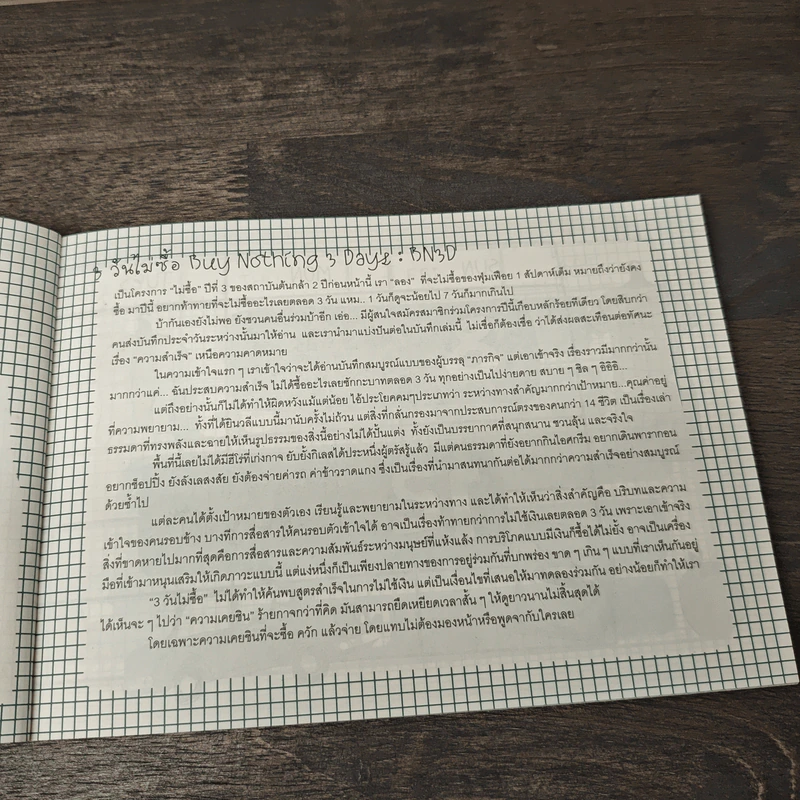 3 วันไม่ซื้อ Buy Nothing 3 Days : BN3D
เป็นโครงการ "ไม่ซื้อ" ปีที่ 3 ของสถาบันต้นกล้า 2 ปีก่อนหน้านี้ เรา "ลอง" ที่จะไม่ซื้อของฟุ่มเฟือย 1 สัปดาห์เต็ม หมายถึงว่ายังคง
ซื้อ มาปีนี้ อยากท้าทายที่จะไม่ซื้ออะไรเลยตลอด 3 วัน แหม... 1 วันก็ดูจะน้อยไป 7 วันก็มากเกินไป
บ้ากันเองยังไม่พอ ยังชวนคนอื่นร่วมบ้าอีก เอ่อ... มีผู้สนใจสมัครสมาชิกร่วมโครงการปีนี้เกือบหลักร้อยทีเดียว โดยสิบกว่า
คนส่งบันทึกประจำวันระหว่างนั้นมาให้อ่าน และเรานำมาแบ่งปันต่อในบันทึกเล่มนี้ ไม่เชื่อก็ต้องเชื่อ ว่าได้ส่งผลสะเทือนต่อทัศนะ
เรื่อง "ความสำเร็จ" เหนือความคาดหมาย
ในความเข้าใจแรก ๆ เราเข้าใจว่าจะได้อ่านบันทึกสมบูรณ์แบบของผู้บรรลุ "ภารกิจ" แต่เอาเข้าจริง เรื่องราวมีมากกว่านั้น
มากกว่าแค่... ฉันประสบความสำเร็จ ไม่ได้ซื้ออะไรเลยซักกะบาทตลอด 3 วัน ทุกอย่างเป็นไปง่ายดาย สบาย ๆ ชิล ๆ อิอิอิ...
แต่ถึงอย่างนั้นก็ไม่ได้ทำให้ผิดหวังแม้แต่น้อย ไอ้ประโยคคมๆประเภทว่า ระหว่างทางสำคัญมากกว่าเป้าหมาย...คุณค่าอยู่
ที่ความพยายาม... ทั้งที่ได้ยินวลีแบบนี้มานับครั้งไม่ถ้วน แต่สิ่งที่กลั่นกรองมาจากประสบการณ์ตรงของคนกว่า 14 ชีวิต เป็นเรื่องเล่า
ธรรมดาที่ทรงพลังและฉายให้เห็นรูปธรรมของสิ่งนี้อย่างไม่ได้ปั้นแต่ง ทั้งยังเป็นบรรยากาศที่สนุกสนาน ชวนลุ้น และจริงใจ
พื้นที่นี้เลยไม่ได้มีฮีโร่ที่เก่งกาจ ยับยั้งกิเลสได้ประหนึ่งผู้ตรัสรู้แล้ว มีแต่คนธรรมดาที่ยังอยากกินไอศกรีม อยากเดินพารากอน
อยากช็อปปิ้ง ยังลังเลสงสัย ยังต้องจ่ายค่ารถ ค่าข้าวราดแกง ซึ่งเป็นเรื่องที่นำมาสนทนากันต่อได้มากกว่าความสำเร็จอย่างสมบูรณ์
ด้วยซ้ำไป
แต่ละคนได้ตั้งเป้าหมายของตัวเอง เรียนรู้และพยายามในระหว่างทาง และได้ทำให้เห็นว่าสิ่งสำคัญคือ บริบทและความ
เข้าใจของคนรอบข้าง บางทีการสื่อสารให้คนรอบตัวเข้าใจได้ อาจเป็นเรื่องท้าทายกว่าการไม่ใช้เงินเลยตลอด 3 วัน เพราะเอาเข้าจริง
สิ่งที่ขาดหายไปมากที่สุดคือการสื่อสารและความสัมพันธ์ระหว่างมนุษย์ที่แห้งแล้ง การบริโภคแบบมีเงินก็ซื้อได้ไม่ยั้ง อาจเป็นเครื่อง
มือที่เข้ามาหนุนเสริมให้เกิดภาวะแบบนี้ แต่แง่หนึ่งก็เป็นเพียงปลายทางของการอยู่ร่วมกันที่บกพร่อง ขาด ๆ เกิน ๆ แบบที่เราเห็นกันอยู่
"3 วันไม่ซื้อ" ไม่ได้ทำให้ค้นพบสูตรสำเร็จในการไม่ใช้เงิน แต่เป็นเงื่อนไขที่เสนอให้มาทดลองร่วมกัน อย่างน้อยก็ทำให้เรา
ได้เห็นจะ ๆ ไปว่า "ความเคยชิน" ร้ายกาจกว่าที่คิด มันสามารถยืดเหยียดเวลาสั้น ๆ ให้ดูยาวนานไม่สิ้นสุดได้
โดยเฉพาะความเคยชินที่จะซื้อ ควัก แล้วจ่าย โดยแทบไม่ต้องมองหน้าหรือพูดจากับใครเลย